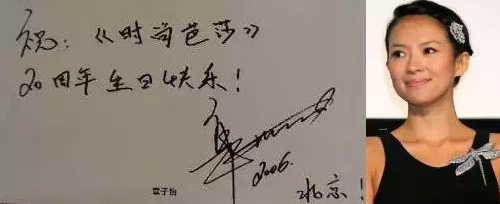 祝:《时尚芭莎》
20周年生日快乐!
章
2006.
章子怡
北京